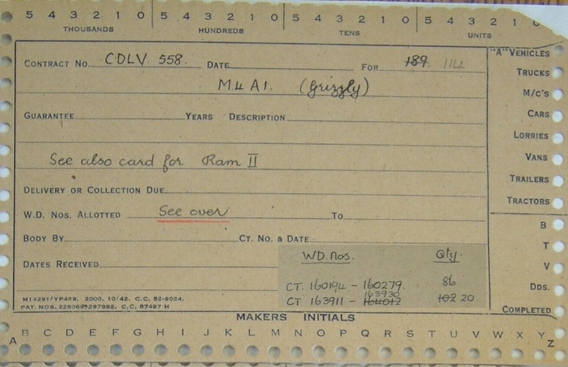 5 4 3 2 1 0 5 4 3 2 1 0 5 4 3 2 1 0 5 4 3 2 1 0
THOUSANDS HUNDREDS TENS UNITS
CONTRACT NO. CDLV 558. DATE FOR 189 112
M4 A1. (Grizzly)
GUARANTEE YEARS DESCRIPTION
See also card for Ram II
DELIVERY OR COLLECTION DUE
W.D. NOS. ALLOTTED See over TO
BODY BY CT. NO. & DATE
DATES RECEIVED
WD. nos. Qty.
CT. 160194 - 160279. 86
163930
CT 163911 - 164012 102 20
"A" VEHICLES
TRUCKS
M/C'S
CARS
LORRIES
VANS
TRAILERS
TRACTORS
B
T
V
DDS.
COMPLETED
MAKERS INITIALS
A B C D E F G H I J K L M N O P Q R S T U V W X Y Z